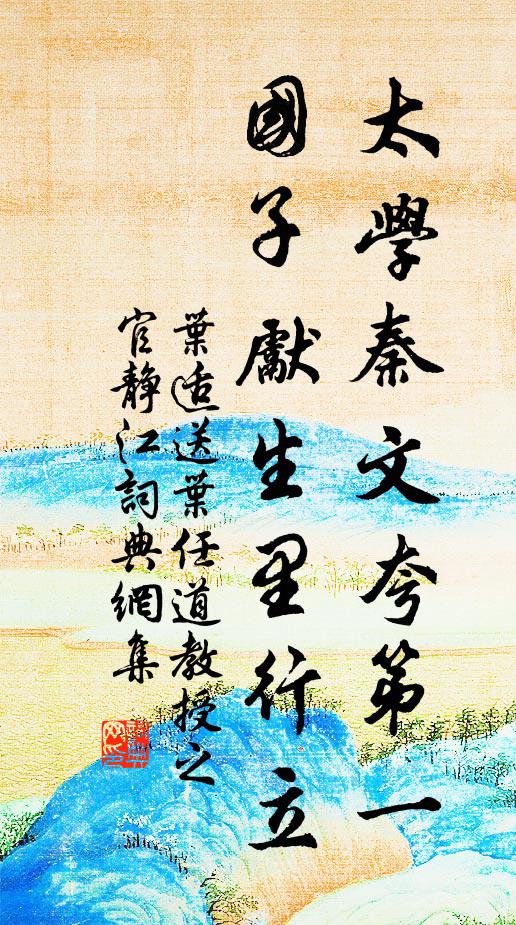 太學奏文夸第一
國子獻生里行立
葉适送葉任道教授之
官靜江詞典網集